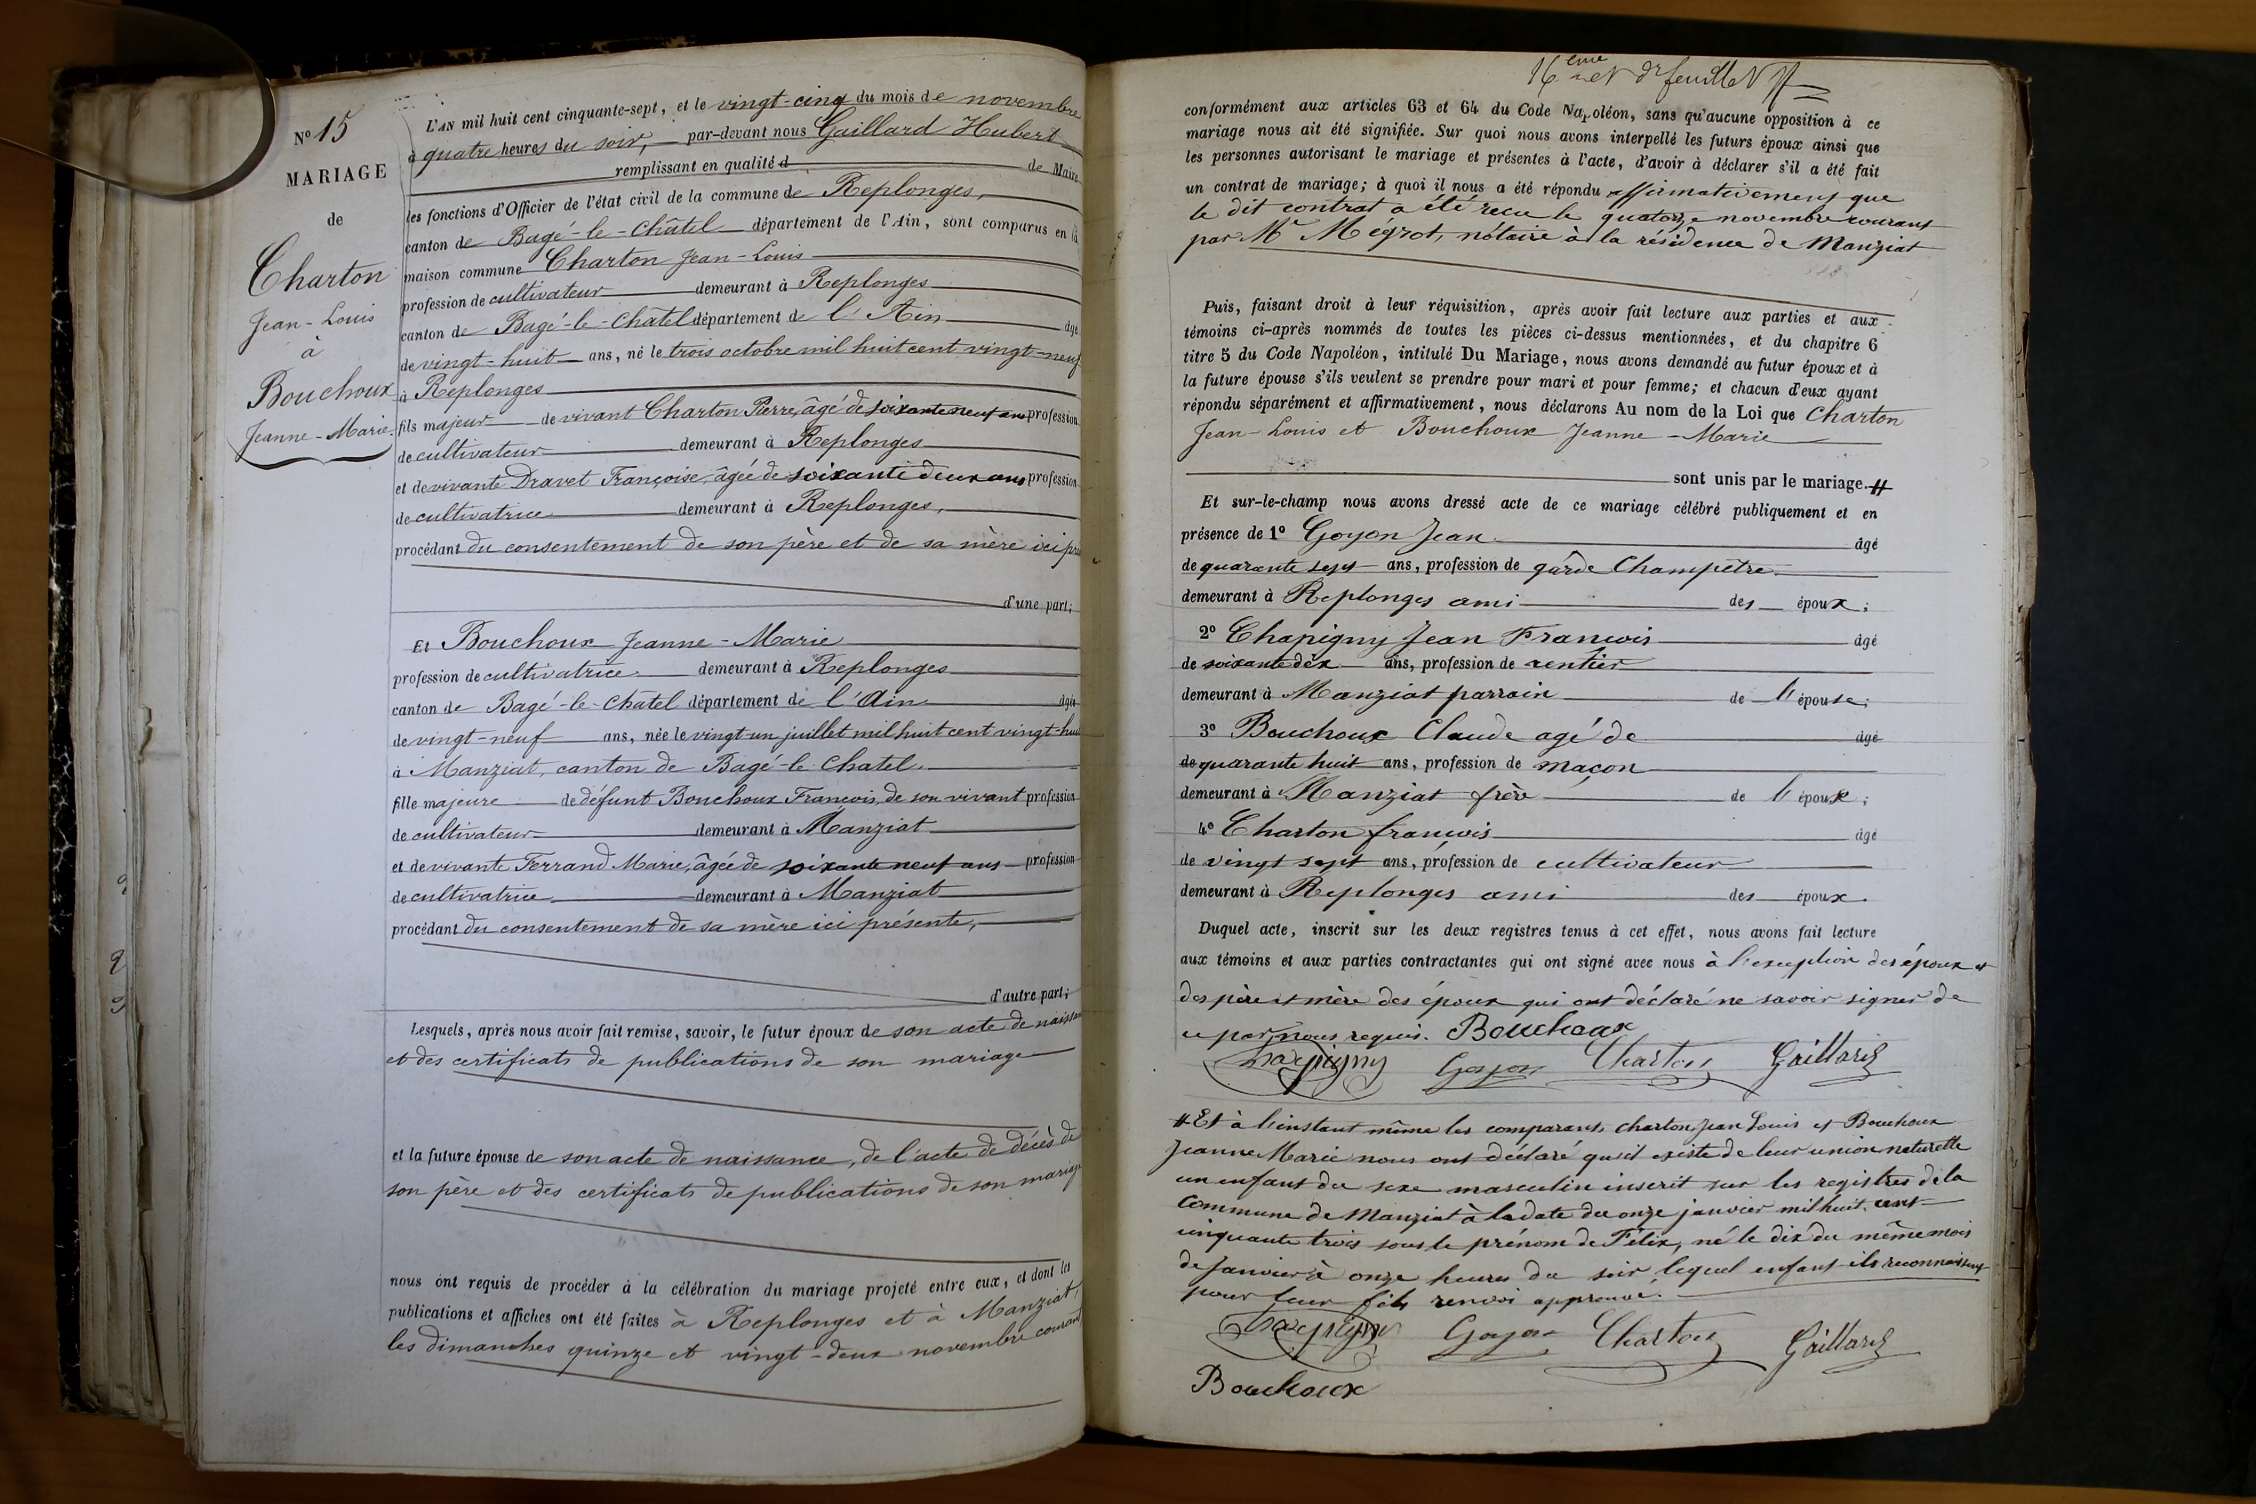 N° 15
MARIAGE
de
Charton
Jean-Louis
à
Bouchoux
Jeanne-Marie.
L'AN mil huit cent cinquante-sept, et le vingt-cinq du mois de novembre
à quatre heures du soir, par-devant nous Gaillard Hubert
remplissant en qualité d de Maire
les fonctions d'Officier de l'état civil de la commune de Replonges,
canton de Bagé-le-Châtel département de l'Ain, sont comparus en la
maison commune Charton Jean-Louis
profession de cultivateur demeurant à Replonges
canton de Bagé-le-Châtel département de l'Ain âgé
de vingt-huit ans, né le trois octobre mil huit cent vingt-neuf
à Replonges
fils majeur de vivant Charton Pierre, âgé de soixante neuf ans profession
de cultivateur demeurant à Replonges
et de vivante Dravet Françoise, âgée de soixante deux ans profession
de cultivatrice demeurant à Replonges,
procédant du consentement de son père et de sa mère ici
d'une part;
Et Bouchoux Jeanne-Marie
profession de cultivatrice demeurant à Replonges
canton de Bagé-le-Chatel département de l'Ain âgée
de vingt-neuf ans, née le vingt-un juillet mil huit cent vingt-huit
à Manziat, canton de Bagé-le-Chatel.
fille majeure de défunt Bouchoux François, de son vivant profession
de cultivateur demeurant à Manziat
et de vivante Ferrand Marie, âgée de soixante neuf ans profession
de cultivatrice demeurant à Manziat
procédant du consentement de sa mère ici présente,
d'autre part;
Lesquels, après nous avoir fait remise, savoir, le futur époux de son acte de naissance
et des certificats de publications de son mariage
et la future épouse de son acte de naissance, de l'acte de décès de
son père et des certificats de publications de son mariage
nous ont requis de procéder à la célébration du mariage projeté entre eux, et dont les
publications et affiches ont été faites à Replonges et à Manziat,
les dimanches quinze et vingt-deux novembre courant
16ème et dr feuillet
conformément aux articles 63 et 64 du Code Napoléon, sans qu'aucune opposition à ce
mariage nous ait été signifiée. Sur quoi nous avons interpellé les futurs époux ainsi que
les personnes autorisant le mariage et présentes à l'acte, d'avoir à déclarer s'il a été fait
un contrat de mariage; à quoi il nous a été répondu affirmativement que
le dit contrat a été recu le quatorze novembre courant
par Me Megrot, notaire à la résidence de Manziat
Puis, faisant droit à leur réquisition, après avoir fait lecture aux parties et aux
témoins ci-après nommés de toutes les pièces ci-dessus mentionnées, et du chapitre 6
titre 5 du Code Napoléon, intitulé Du Mariage, nous avons demandé au futur époux et à
la future épouse s'ils veulent se prendre pour mari et pour femme; et chacun d'eux ayant
répondu séparément et affirmativement, nous déclarons Au nom de la Loi que Charton
Jean-Louis et Bouchoux Jeanne-Marie
sont unis par le mariage. #
Et sur-le-champ nous avons dressé acte de ce mariage célébré publiquement et en
présence de 1° Goyon Jean âgé
de quarante sept ans, profession de garde Champêtre
demeurant à Replonges ami des époux;
2° Chapigny Jean Francois âgé
de soixante dix ans, profession de rentier
demeurant à Manziat parrain de l'épouse;
3° Bouchoux Claude agé de âgé
de quarante huit ans, profession de maçon
demeurant à Manziat frère de l'épouse;
4° Charton françois âgé
de vingt sept ans, profession de cultivateur
demeurant à Replonges ami des époux.
Duquel acte, inscrit sur les deux registres tenus à cet effet, nous avons fait lecture
aux témoins et aux parties contractantes qui ont signé avec nous à l'exception des époux et
des père et mère des époux qui ont déclaré ne savoir signer de
ce par nous requis. Bouchoux
Chapigny Goyon Charton Gaillard
# Et à l'instant même les comparants Charton Jean Louis et Bouchoux
Jeanne Marie nous ont déclaré qu'il existe de leur union naturelle
un enfant du sexe masculin inscrit sur les registres de la
Commune de Manziat à la date du onze janvier mil huit cent
cinquante trois sous le prénom de Félix, né le dix du même mois
de Janvier à onze heures du soir, lequel enfant ils reconnaissent
pour leur fils renvoi approuvé.
Chapigny Goyon Charton Gaillard
Bouchoux